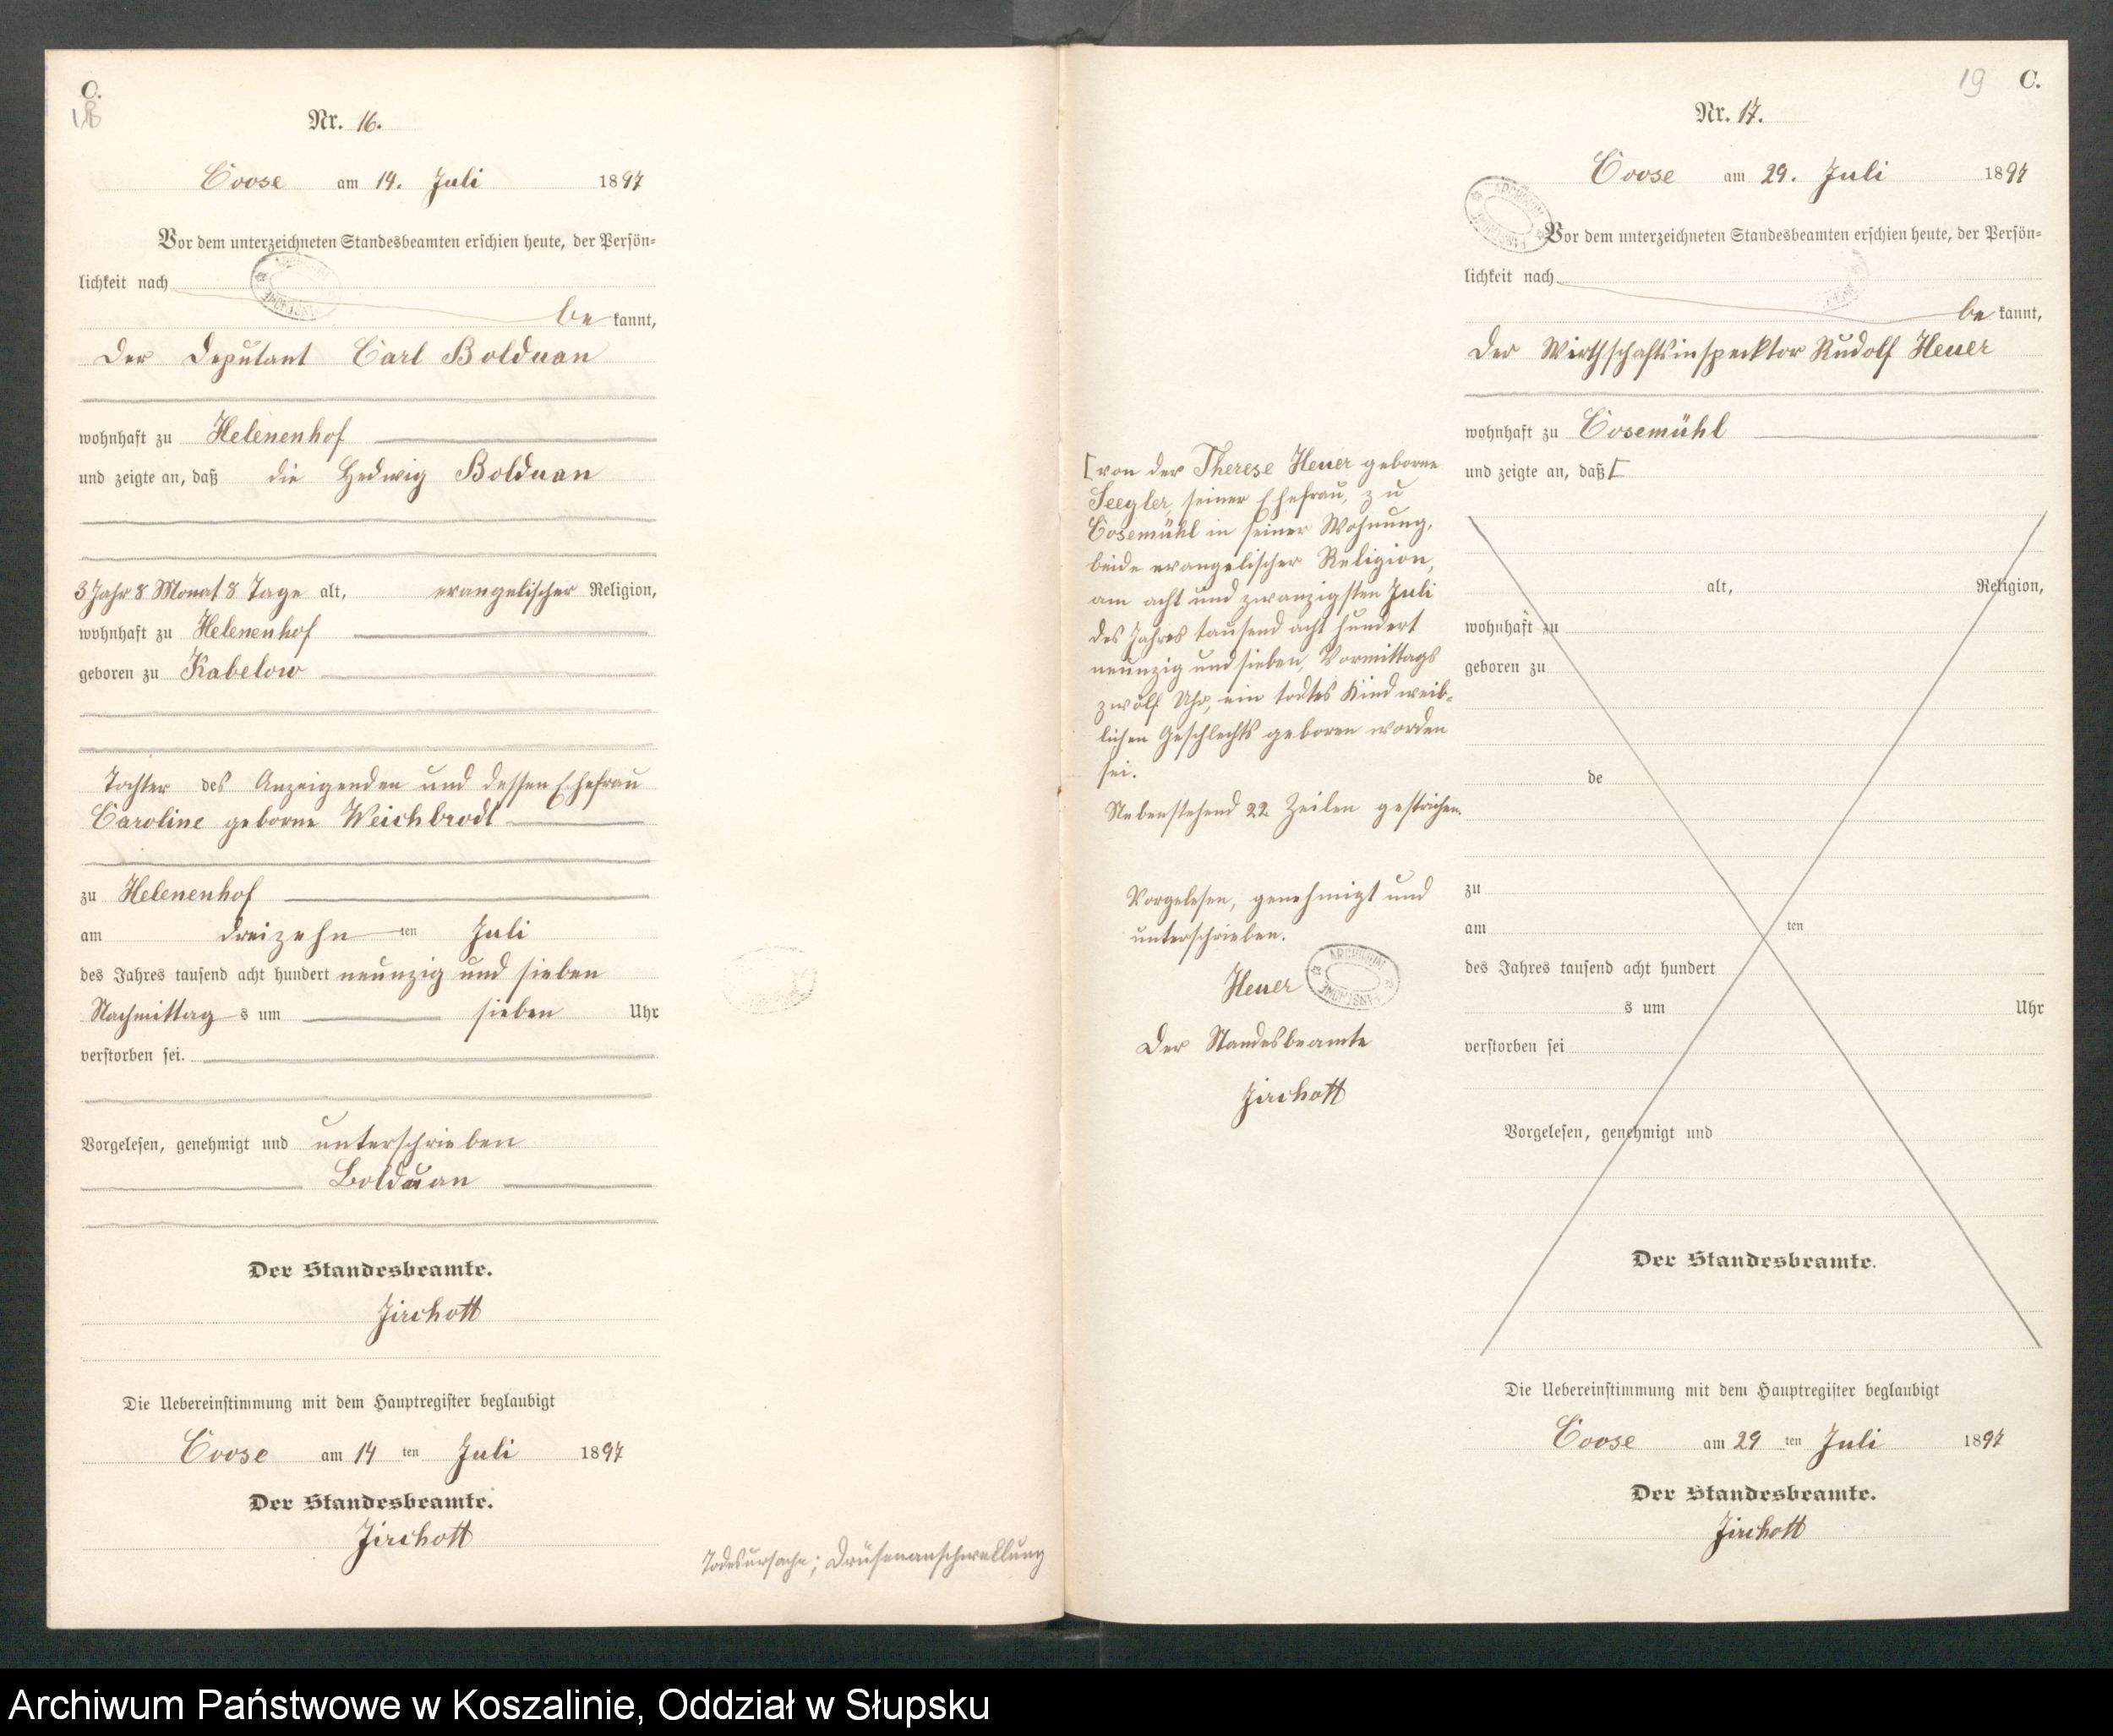 C.
18
Nr. 16.
Coose am 14. Juli 1897
Vor dem unterzeichneten Standesbeamten erschien heute, der Persön-
lichkeit nach
be kannt,
der Deputant Carl Bolduan
wohnhaft zu Helenenhof
und zeigte an, daß die Hedwig Bolduan
3 Jahr 8 Monat 8 Tage alt, evangelischer Religion,
wohnhaft zu Helenenhof
geboren zu Kabelow
Tochter des Anzeigenden und dessen Ehefrau
Caroline geborne Weichbrodt
zu Helenenhof
am dreizehn ten Juli
des Jahres tausend acht hundert neunzig und sieben
Nachmittag s um sieben Uhr
verstorben sei.
Vorgelesen, genehmigt und unterschrieben
Bolduan
Der Standesbeamte.
Jirchott
Die Uebereinstimmung mit dem Hauptregister beglaubigt
Coose am 14 ten Juli 1897
Der Standesbeamte.
Jirchott
Todesursache; Drüsenanschwellung
19 C.
Nr. 17.
Coose am 29. Juli 1897
Vor dem unterzeichneten Standesbeamten erschien heute, der Persön-
lichkeit nach
be kannt,
der Wirthschaftsinspecktor Rudolf Heuer
wohnhaft zu Cosemühl
und zeigte an, daß [
[von der Therese Heuer geborne
Seegler, seiner Ehefrau, zu
Cosemühl in seiner Wohnung,
beide evangelischer Religion,
am acht und zwanzigsten Juli
des Jahres tausend acht hundert
neunzig und sieben, Vormittags
zwölf Uhr, ein todtes Kind weib-
lichen Geschlechts geboren worden
sei.
Nebenstehend 22 Zeilen gestrichen.
Vorgelesen, genehmigt und
unterschrieben.
Heuer
ARCHIWUM PAŃSTWOWE
Der Standesbeamte
Jirchott
alt, Religion,
wohnhaft zu
geboren zu
de
zu
am ten
des Jahres tausend acht hundert
s um Uhr
verstorben sei
Vorgelesen, genehmigt und
Der Standesbeamte.
Die Uebereinstimmung mit dem Hauptregister beglaubigt
Coose am 29 ten Juli 1897
Der Standesbeamte.
Jirchott
Archiwum Państwowe w Koszalinie, Oddział w Słupsku